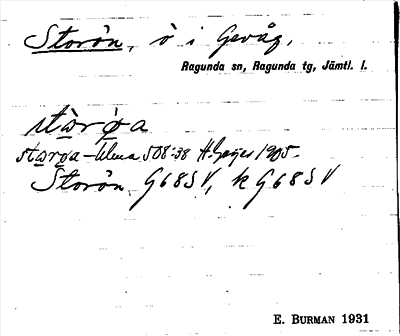 Storön, ö i Gevåg.
Ragunda sn, Ragunda tg, Jämtl. l.
stàrø̀a
starøa - 508:38 H. Geijer 1905.
Storön G68SV, k G68SV
E. BURMAN 1931